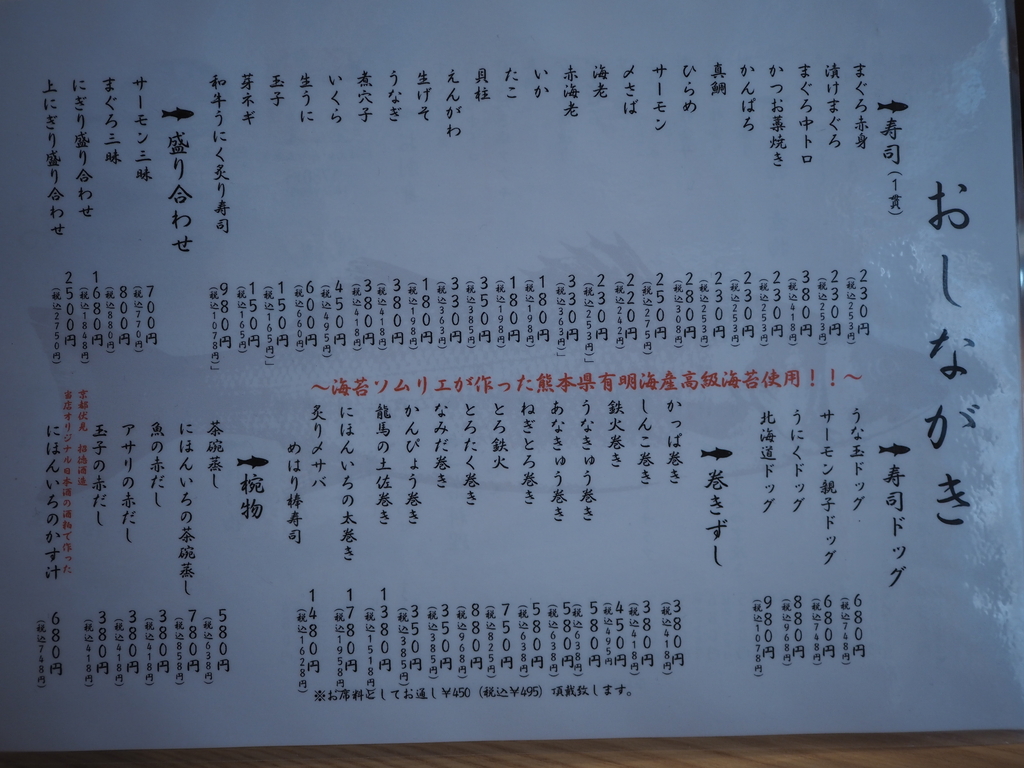 おしながき
寿司(1貫)
まぐろ赤身 230円(税込253円)
漬けまぐろ 230円(税込253円)
まぐろ中トロ 380円(税込418円)
かつお藁焼き 230円(税込253円)
かんぱち 230円(税込253円)
真鯛 230円(税込253円)
ひらめ 280円(税込308円)
サーモン 250円(税込275円)
〆さば 220円(税込242円)
海老 230円(税込253円)
赤海老 330円(税込363円)
いか 180円(税込198円)
たこ 180円(税込198円)
貝柱 350円(税込385円)
えんがわ 330円(税込363円)
生げそ 180円(税込198円)
うなぎ 380円(税込418円)
煮穴子 380円(税込418円)
いくら 450円(税込495円)
生うに 600円(税込660円)
玉子 150円(税込165円)
芽ネギ 150円(税込165円)
和牛うにく炙り寿司 980円(税込1078円)
盛り合わせ
サーモン三昧 700円(税込770円)
まぐろ三昧 800円(税込880円)
にぎり盛り合わせ 1680円(税込1848円)
上にぎり盛り合わせ 2500円(税込2750円)
～海苔ソムリエが作った熊本県有明海産高級海苔使用！！～
寿司ドッグ
うな玉ドッグ 680円(税込748円)
サーモン親子ドッグ 680円(税込748円)
うにくドッグ 880円(税込968円)
北海道ドッグ 980円(税込1078円)
巻きずし
かっぱ巻き 380円(税込418円)
しんこ巻き 380円(税込418円)
鉄火巻き 450円(税込495円)
うなきゅう巻き 580円(税込638円)
あなきゅう巻き 580円(税込638円)
ねぎとろ巻き 580円(税込638円)
とろ鉄火 750円(税込825円)
とろたく巻き 880円(税込968円)
なみだ巻き 350円(税込385円)
かんぴょう巻き 350円(税込385円)
龍馬の土佐巻き 1380円(税込1518円)
にほんいろの太巻き 1780円(税込1958円)
炙り〆サバ
めはり棒寿司 1480円(税込1628円)
椀物
茶碗蒸し 580円(税込638円)
にほんいろの茶碗蒸し 780円(税込858円)
魚の赤だし 380円(税込418円)
アサリの赤だし 380円(税込418円)
玉子の赤だし 380円(税込418円)
京都伏見 招徳酒造
当店オリジナル日本酒の酒粕で作った
にほんいろのかす汁 680円(税込748円)
※お席料としてお通し￥450 (税込￥495) 頂戴致します。